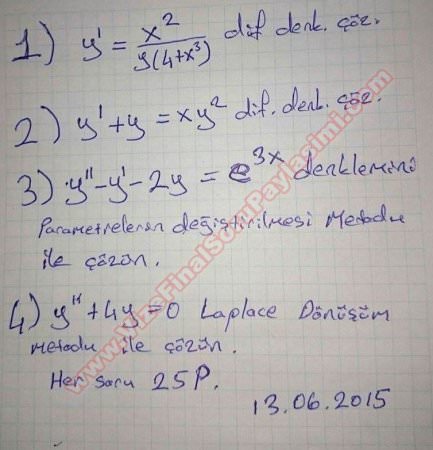 1) y' = x² / y(4+x³) dif denk. çöz.
2) y'+y = xy² dif. denk. çöz.
3) y''-y'-2y = e^3x denklemini
Parametrelerin değiştirilmesi Metodu
ile çözün.
4) y''+4y=0 Laplace Dönüşüm
metodu ile çözün.
Her soru 25P.
13.06.2015
www.VizeFinalSoruPaylasimi.com